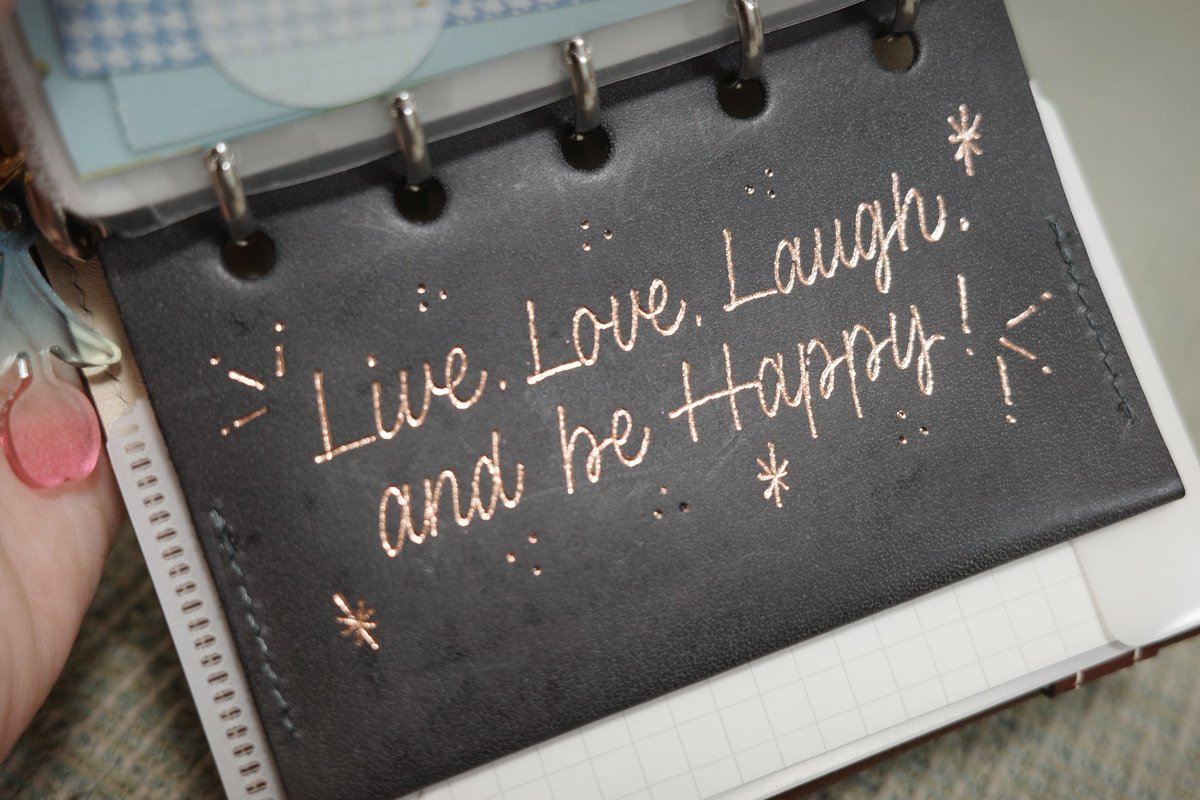 Live. Love. Laugh.
and be Happy!